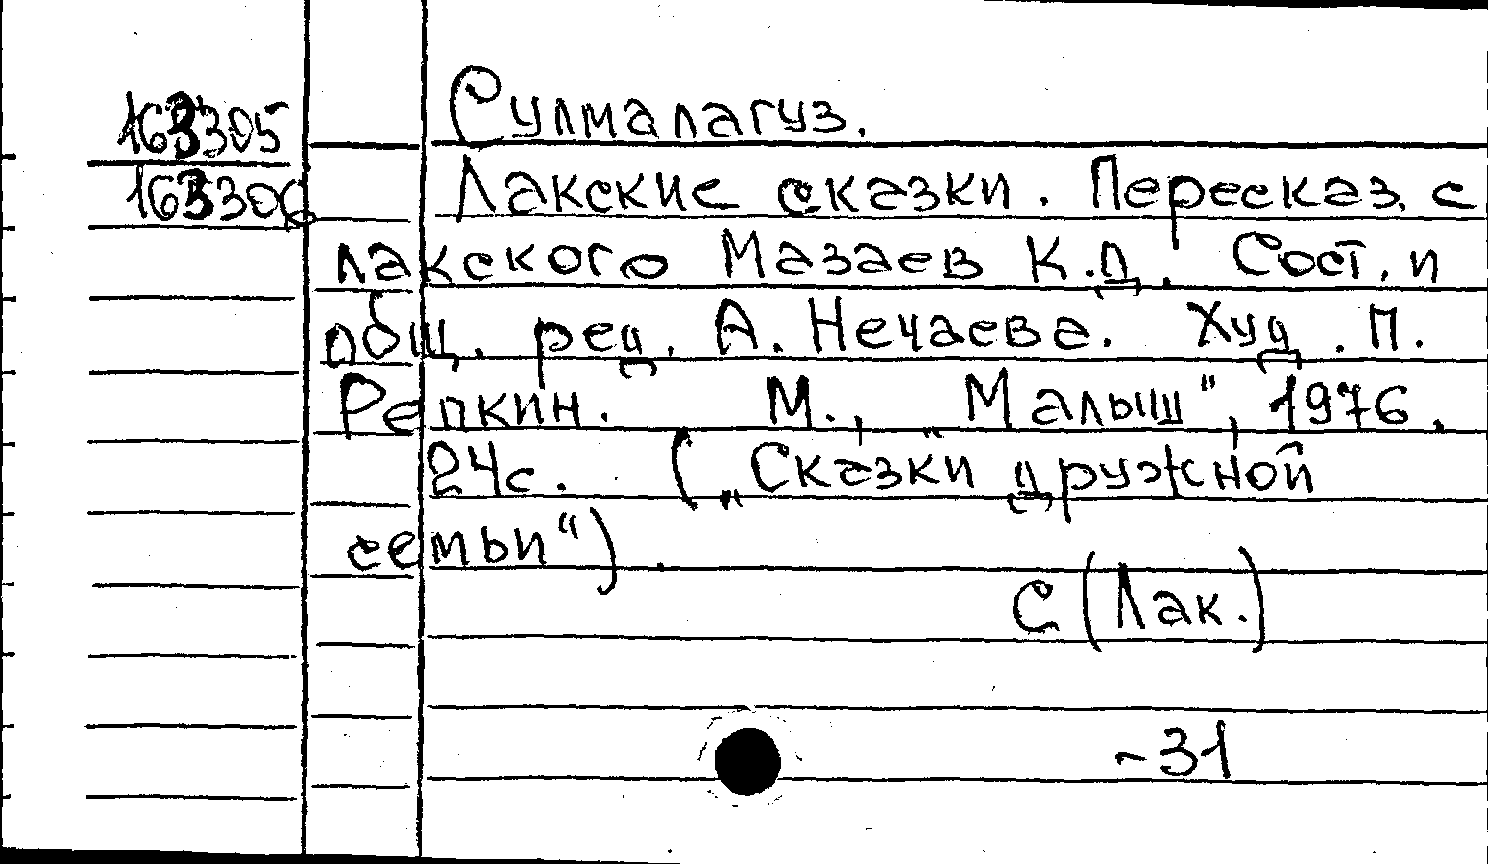 163305
163306
Сулмалагуз.
Лакские сказки. Пересказ. с
лакского Мазаев К.Д. Сост. и
общ. ред. А. Нечаева. Худ. П.
Репкин. М., „Малыш“, 1976.
24с. („Сказки дружной
семьи“).
С (Лак.)
~31